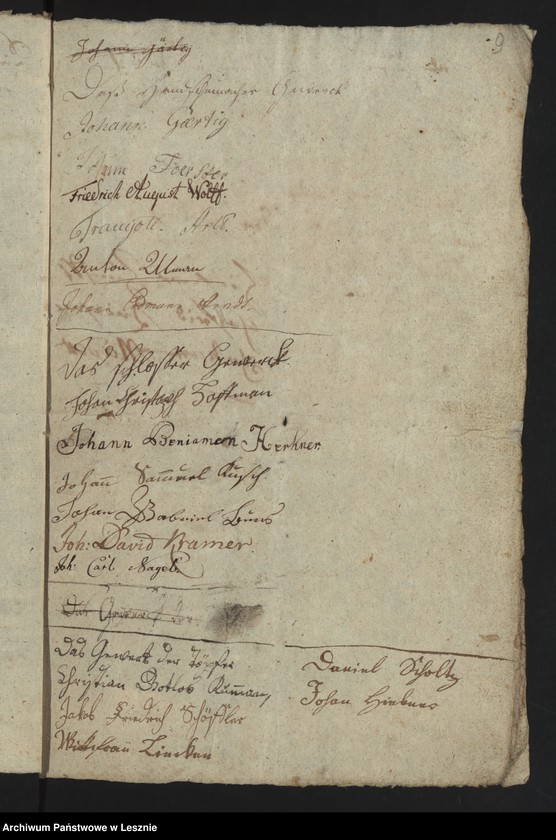 9
Johann Gärtig
Das Handschumacher Gewerck
Johann Gärtig
Foerster
Friedrich August Wolff.
Traugott
Anton Ulman
Johann
Das schlosser Gewerck
Johan Christoph Hoffman
Johann Beniamen Herkner
Johann Sammuel Kusch
Johan Gabriel
Joh: David Kramer
Joh: Carl Nagel
Das Gewerck der
Das Gewerck der Töpfer
Christian Gotlob
Jakob Friedrich Schöffler
Wittfrau Lincken
Daniel Scholtz
Johan Hiebner
Archiwum Państwowe w Lesznie